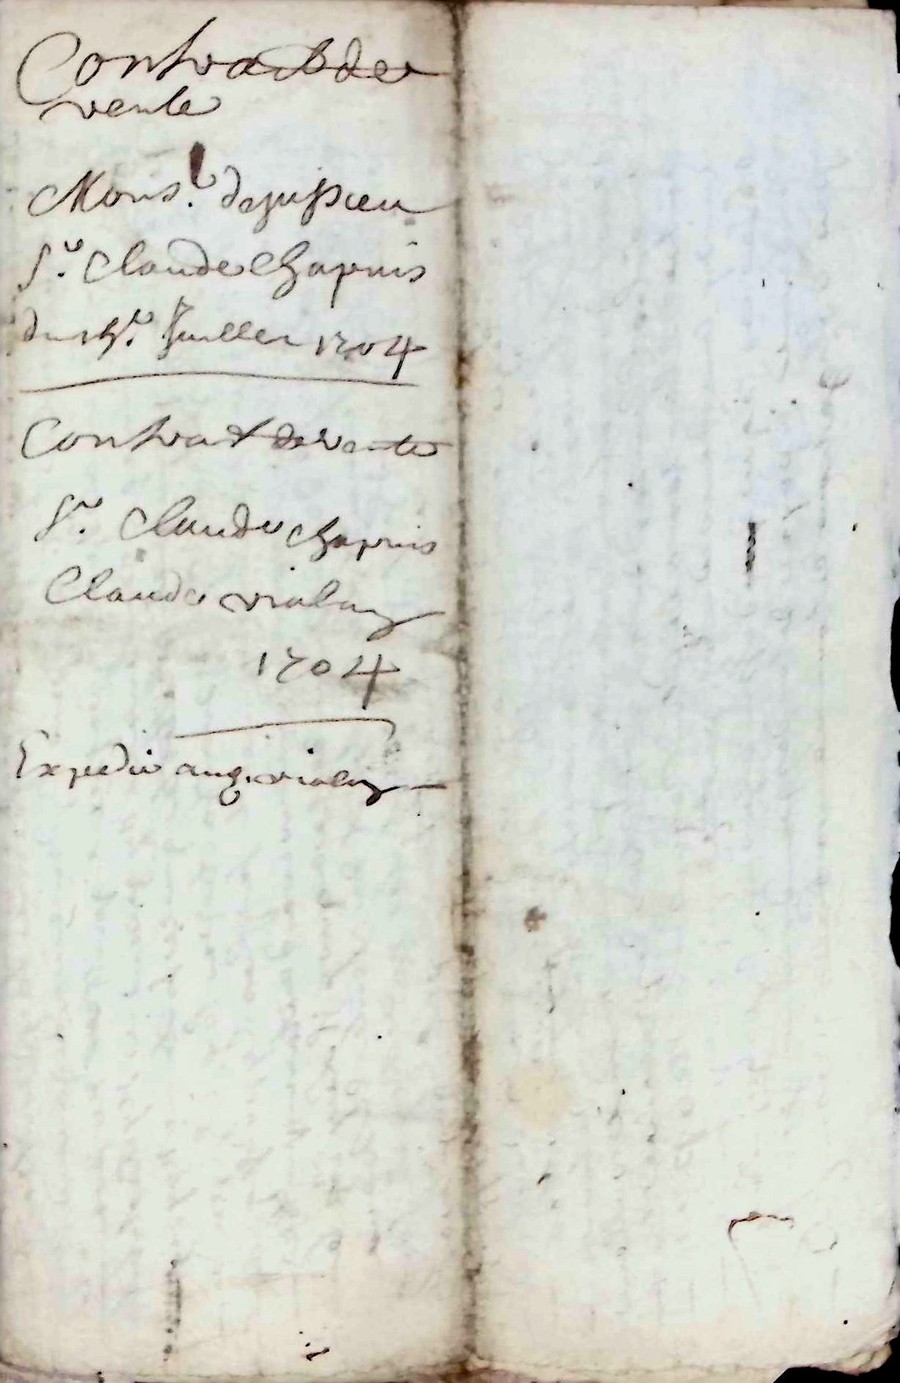 Contract de
vente
Mons.r dejussieu
Sr. Claude Chapuis
du Juillet 1704
Contract de vente
Sr. Claude Chapuis
Claude vialay
1704
Expedié vialay